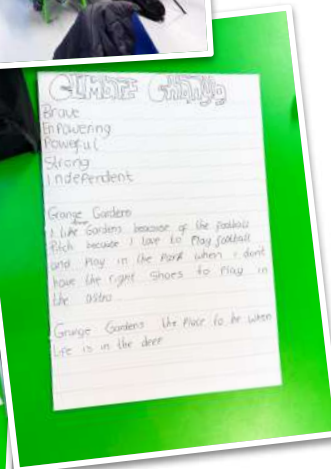 CLIMATE Change
Brave
EnPowering
Powerful
Strong
Independent
Grange Gardens
I like Gardens beacause of the football
Pitch because I love to Play football
and Play in the Park when I dont
have the right Shoes to Play in
the astro
Grange Gardens the Place to be when
Life is in the deer